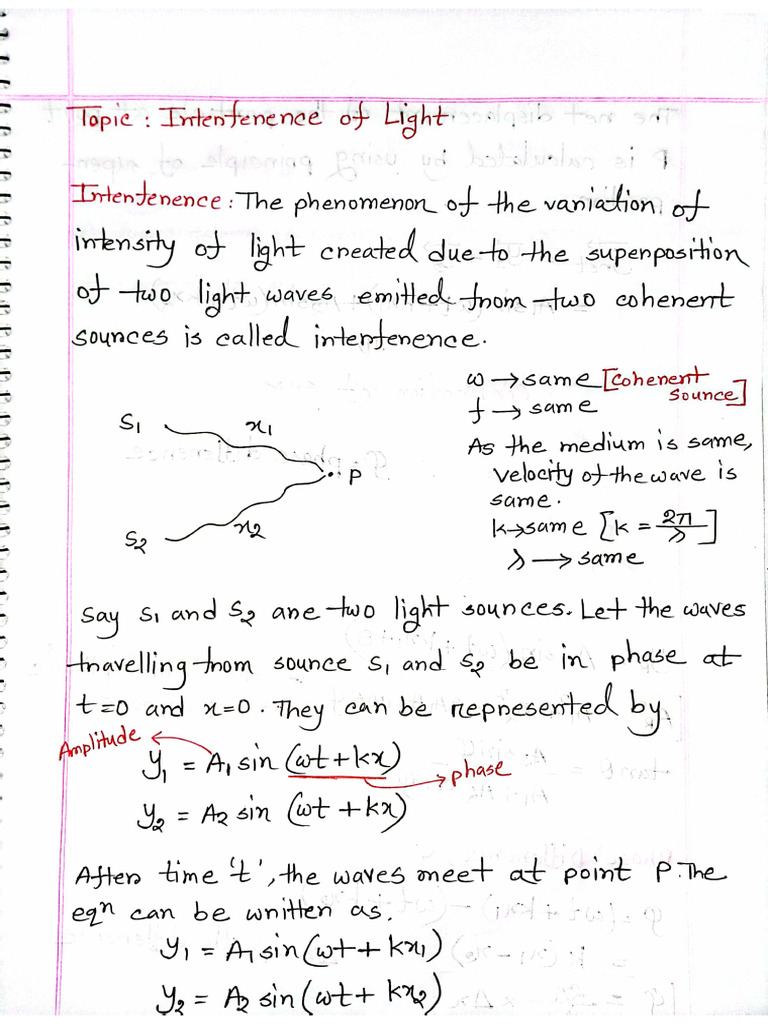 Topic : Interference of Light
Interference : The phenomenon of the variation of
intensity of light created due to the superposition
of two light waves emitted from two coherent
sources is called interference.
ω → same [coherent source]
f → same
As the medium is same,
velocity of the wave is
same.
k → same [k = 2π/λ]
λ → same
S1 x1
P
S2 x2
Say S1 and S2 are two light sources. Let the waves
travelling from source S1 and S2 be in phase at
t=0 and x=0. They can be represented by.
Amplitude
y1 = A1 sin (ωt + kx)
phase
y2 = A2 sin (ωt + kx)
After time 't', the waves meet at point P. The
eqn can be written as,
y1 = A1 sin (ωt + kx1)
y2 = A2 sin (ωt + kx2)